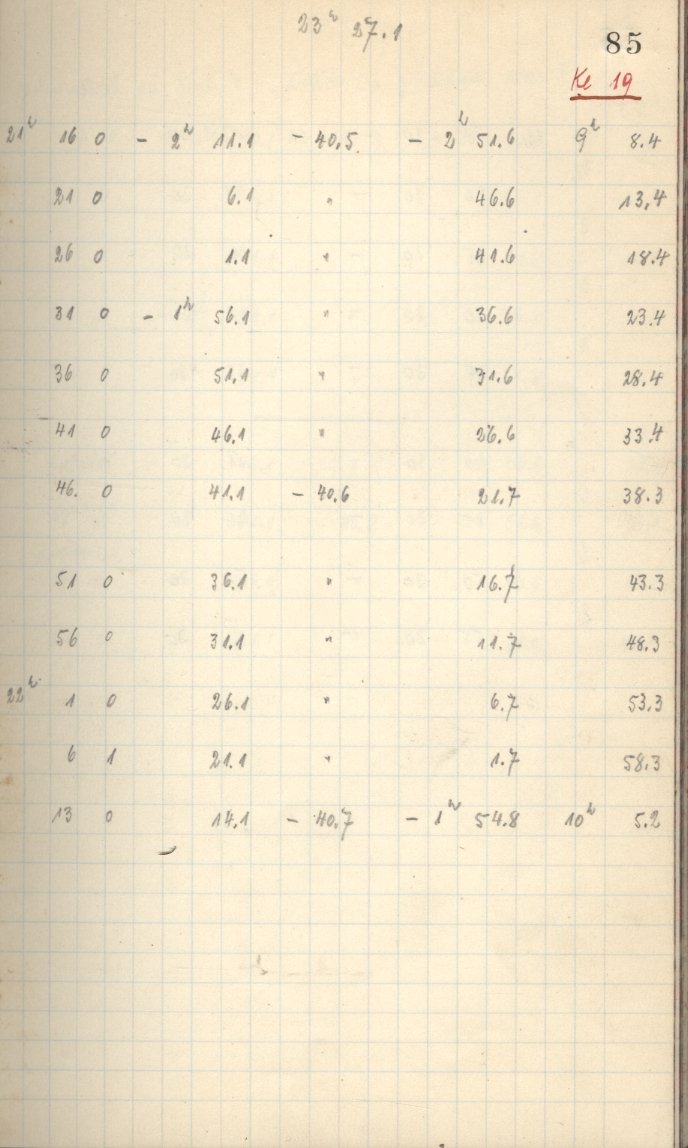 23ʰ 27.1
85
Ke 19
21ʰ 16 0 - 2ʰ 11.1 - 40.5 - 2ʰ 51.6 9ʰ 8.4
21 0 6.1 " 46.6 13.4
26 0 1.1 " 41.6 18.4
31 0 - 1ʰ 56.1 " 36.6 23.4
36 0 51.1 " 31.6 28.4
41 0 46.1 " 26.6 33.4
46. 0 41.1 - 40.6 21.7 38.3
51 0 36.1 " 16.7 43.3
56 0 31.1 " 11.7 48.3
22ʰ 1 0 26.1 " 6.7 53.3
6 1 21.1 " 1.7 58.3
13 0 14.1 - 40.7 - 1ʰ 54.8 10ʰ 5.2